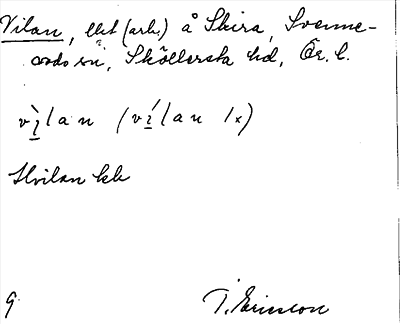 Vilan, lht (arb.) å Skira, Svenne-
vads sn, Sköllersta hd, Ör. l.
vìlan (vílan 1x)
Hvilan hk
9 T. Ericsson